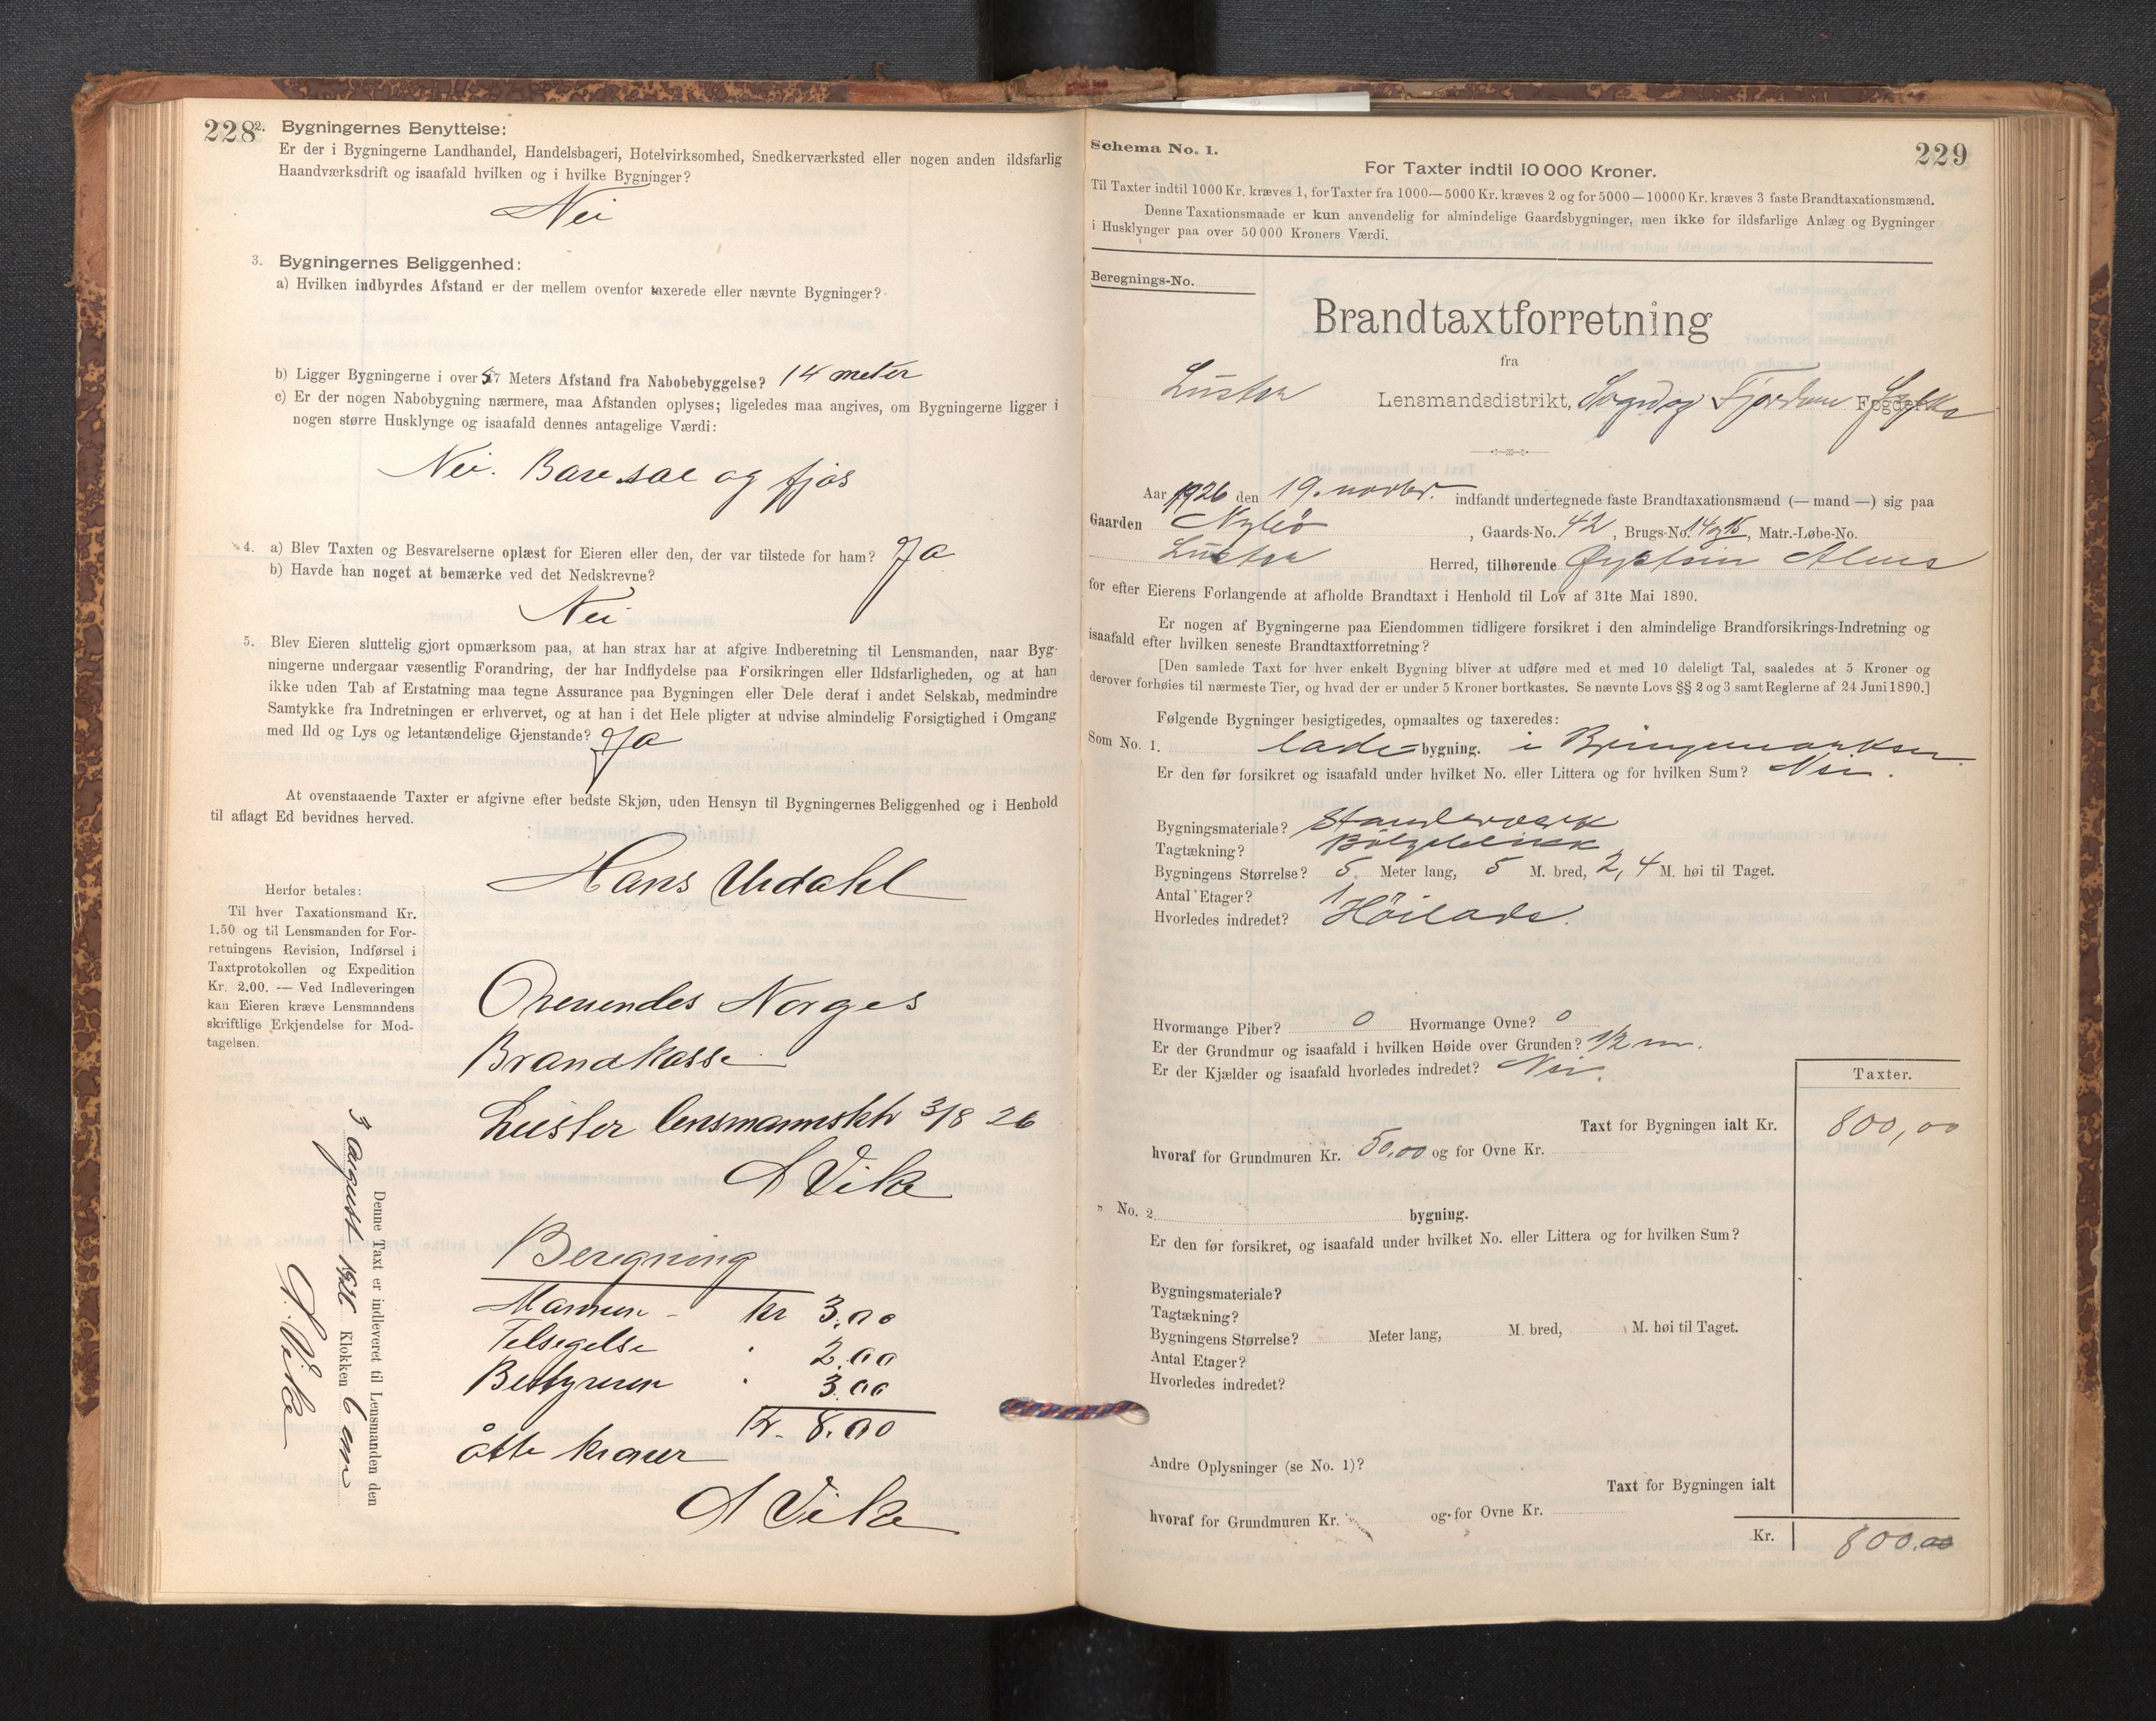 228
2. Bygningernes Benyttelse:
Er der i Bygningerne Landhandel, Handelsbageri, Hotelvirksomhed, Snedkerværksted eller nogen anden ildsfarlig
Haandværksdrift og isaafald hvilken og i hvilke Bygninger?
Nei
3. Bygningernes Beliggenhed:
a) Hvilken indbyrdes Afstand er der mellem ovenfor taxerede eller nævnte Bygninger?
b) Ligger Bygningerne i over 57 Meters Afstand fra Nabobebyggelse? 14 meter
c) Er der nogen Nabobygning nærmere, maa Afstanden oplyses; ligeledes maa angives, om Bygningerne ligger i
nogen større Husklynge og isaafald dennes antagelige Værdi:
Nei. Bare sæl og fjøs
4. a) Blev Taxten og Besvarelserne oplæst for Eieren eller den, der var tilstede for ham? Ja
b) Havde han noget at bemærke ved det Nedskrevne?
Nei
5. Blev Eieren sluttelig gjort opmærksom paa, at han strax har at afgive Indberetning til Lensmanden, naar Byg-
ningerne undergaar væsentlig Forandring, der har Indflydelse paa Forsikringen eller Ildsfarligheden, og at han
ikke uden Tab af Erstatning maa tegne Assurance paa Bygningen eller Dele deraf i andet Selskab, medmindre
Samtykke fra Indretningen er erhvervet, og at han i det Hele pligter at udvise almindelig Forsigtighed i Omgang
med Ild og Lys og letantændelige Gjenstande? Ja
At ovenstaaende Taxter er afgivne efter bedste Skjøn, uden Hensyn til Bygningernes Beliggenhed og i Henhold
til aflagt Ed bevidnes herved.
Hans Urdahl
Herfor betales:
Til hver Taxationsmand Kr.
1.50 og til Lensmanden for For-
retningens Revision, Indførsel i
Taxtprotokollen og Expedition
Kr. 2.00. — Ved Indleveringen
kan Eieren kræve Lensmandens
skriftlige Erkjendelse for Mod-
tagelsen.
Norges
Brandkasse
Luster lensmannsktr 3/8 26
A Vike
Beregning
Mannen - kr 3.00
2.00
Bestyreren 3.00
Kr. 8.00
åtte kroner
A Vike
Denne Taxt er indleveret til Lensmanden den
3 august 1926 Klokken 6 em
A. Vike
229
Schema No. 1.
For Taxter indtil 10 000 Kroner.
Til Taxter indtil 1000 Kr. kræves 1, for Taxter fra 1000—5000 Kr. kræves 2 og for 5000—10000 Kr. kræves 3 faste Brandtaxationsmænd.
Denne Taxationsmaade er kun anvendelig for almindelige Gaardsbygninger, men ikke for ildsfarlige Anlæg og Bygninger
i Husklynger paa over 50 000 Kroners Værdi.
Beregnings-No.
Brandtaxtforretning
fra
Luster Lensmandsdistrikt, Sogn og Fjordane Fylke
Aar 1926 den 19. novbr. indfandt undertegnede faste Brandtaxationsmænd (— mand —) sig paa
Gaarden , Gaards-No. 42, Brugs-No. 14 og 15, Matr.-Løbe-No.
Luster Herred, tilhørende Øystein
for efter Eierens Forlangende at afholde Brandtaxt i Henhold til Lov af 31te Mai 1890.
Er nogen af Bygningerne paa Eiendommen tidligere forsikret i den almindelige Brandforsikrings-Indretning og
isaafald efter hvilken seneste Brandtaxtforretning?
[Den samlede Taxt for hver enkelt Bygning bliver at udføre med et med 10 deleligt Tal, saaledes at 5 Kroner og
derover forhøies til nærmeste Tier, og hvad der er under 5 Kroner bortkastes. Se nævnte Lovs §§ 2 og 3 samt Reglerne af 24 Juni 1890.]
Følgende Bygninger besigtigedes, opmaaltes og taxeredes:
Som No. 1. lade- bygning. i
Er den før forsikret og isaafald under hvilket No. eller Littera og for hvilken Sum? Nei.
Bygningsmateriale? Standerverk
Tagtækning? Bølgeblikk
Bygningens Størrelse? 5. Meter lang, 5 M. bred, 2,4 M. høi til Taget.
Antal Etager? 1
Hvorledes indredet? Höilade.
Hvormange Piber? 0 Hvormange Ovne? 0
Er der Grundmur og isaafald i hvilken Høide over Grunden? 1/2 m.
Er der Kjælder og isaafald hvorledes indredet? Nei.
Taxter.
Taxt for Bygningen ialt Kr. 800,00
hvoraf for Grundmuren Kr. 50,00 og for Ovne Kr.
„ No. 2 bygning.
Er den før forsikret, og isaafald under hvilket No. eller Littera og for hvilken Sum?
Bygningsmateriale?
Tagtækning?
Bygningens Størrelse? Meter lang, M. bred, M. høi til Taget.
Antal Etager?
Hvorledes indredet?
Andre Oplysninger (se No. 1)?
Taxt for Bygningen ialt
hvoraf for Grundmuren Kr. og for Ovne Kr.
Kr. 800.00